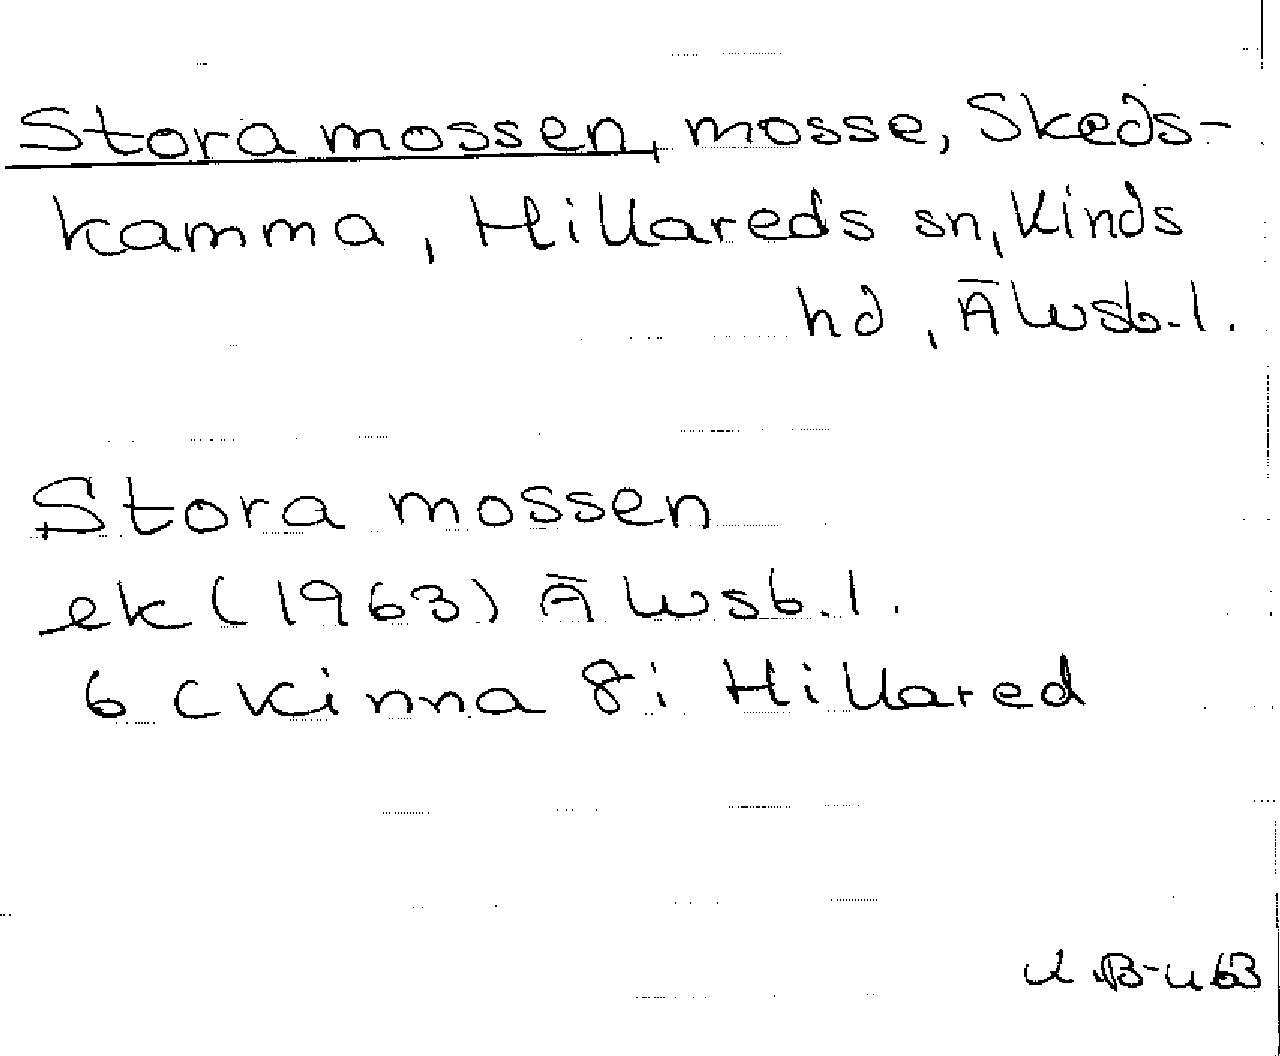 Stora mossen, mosse, Skeds-
kamma, Hillareds sn, Kinds
hd, Älvsb.l.
Stora mossen
ek (1963) Älvsb.l.
6 C Kinna 8i Hillared